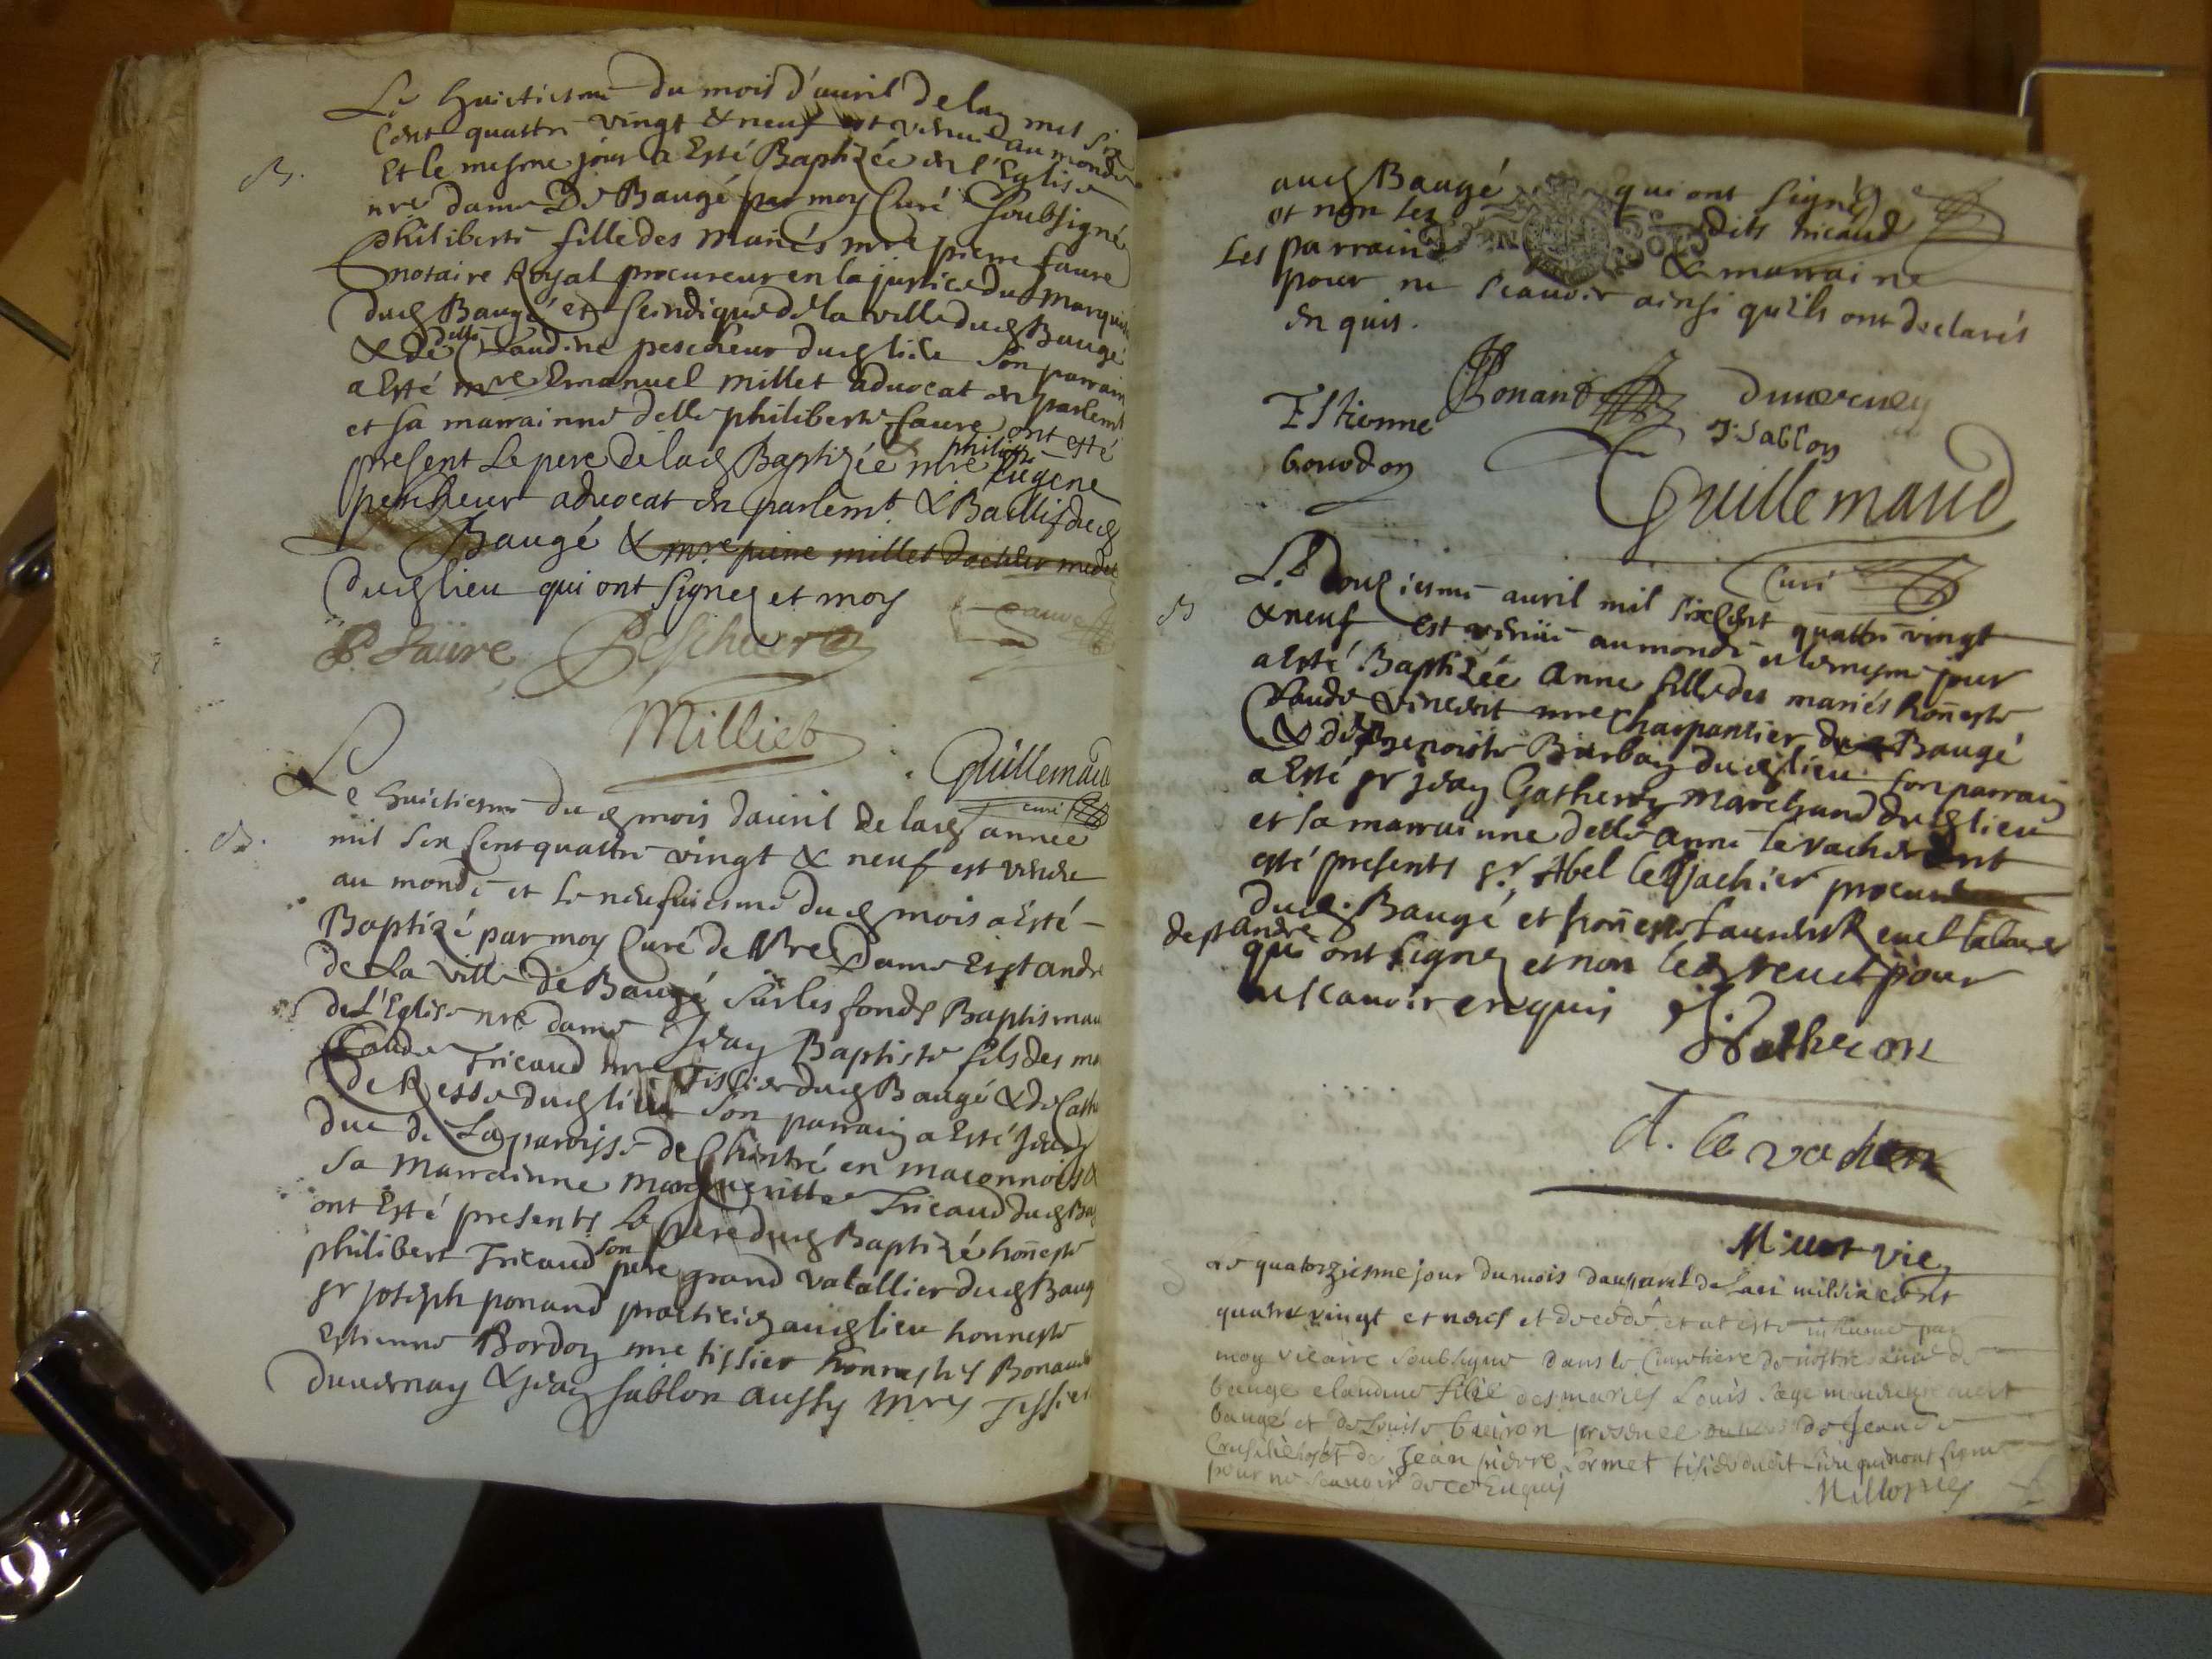 Le huictiesme du mois d'auril de lan mil six
Cent quattre vingt & neuf est venue au monde
Et le mesme jour a Esté Baptizée en l'Eglise
B.
nre dame De Baugé par moy Curé Soubsigné
philiberte fille des mariés mre pierre faure
notaire Royal procureur en la justice du Marquisa
dud Baugé et seindique de la ville dud Baugé
& de delle Claudine pescheur dud lieu Son parrain
a Esté mre Emanuel millet aduocat en parlemt
et sa marrainne delle philiberte faure ont esté
present Le pere de lad Baptizée mre philippe Eugene
pescheur aduocat en parlemt & Baillif dud
Baugé & mre pierre millet docteur medec
dud lieu qui ont Signez et moy
P. Faure Pescheur
Milliet
Guillemaud
curé
Le huictiesme dud mois dauril de lad année
B.
mil Six Cent quattre vingt & neuf est venue
au monde et le neufuiesme dud mois a Esté
Baptizé par moy Curé de Nre Dame Et st andré
de La ville de Baugé sur les fonds Baptismau
de L'Eglise nre dame Jean Baptiste fils des ma
Claude Tricaud mre Tissier dud Baugé & de Cath
de Resse dud lieu Son parrain a Esté Jean
duc de La paroisse de Chintré en maconnois &
Sa Marrainne Margueritte Tricaud dud Bau
ont Esté presents Le pere dud Baptizé honneste
philibert Tricaud son pere grand vatallier dud Baug
sr joseph ponand practicien aud lieu honneste
Estienne Bordon mre tissier honnestes Bonauen
duuernay & jean sablon aussy mres Tissie
aud Baugé qui ont Signéz
et non les dits tricaud
Les parrain & marraine
pour ne scauoir ainsi qu'ils ont declarés
en quis.
Ponand duuerney
Estienne J. Sablon
bourdon
Guillemaud
Curé
B
Le Douziesme auril mil six Cent quattre vingt
& neuf est venüe au monde et le mesme jour
a Esté Baptizée anne fille des mariés honneste
Claude Vincent mre Charpantier du Baugé
& de Benoiste Barbay dud lieu son parrain
a Esté sr jean Gatheron Marchand dud lieu
et sa marrainne delle anne levacher Ont
esté presents sr. Abel Levachier procureur
dud. Baugé et honneste Laurent Reuel
de st andré
qui ont Signez et non led reuel pour
ne scauoir enquis
Gatheron
A. le vacher
Le quatorziesme jour du mois dauparil de Lan mil six cent
quatre vingt et neuf et decedé et at esté inhumé par
moy vicaire soubsigné dans le Cimetiere de nostre dame de
bauge claudine fille des mariés Louis
baugé et de Louise presence de Jean
et de Jean pierre Cormet tissier dudit Lieu qui nont signé
pour ne scauoir de ce Enquis